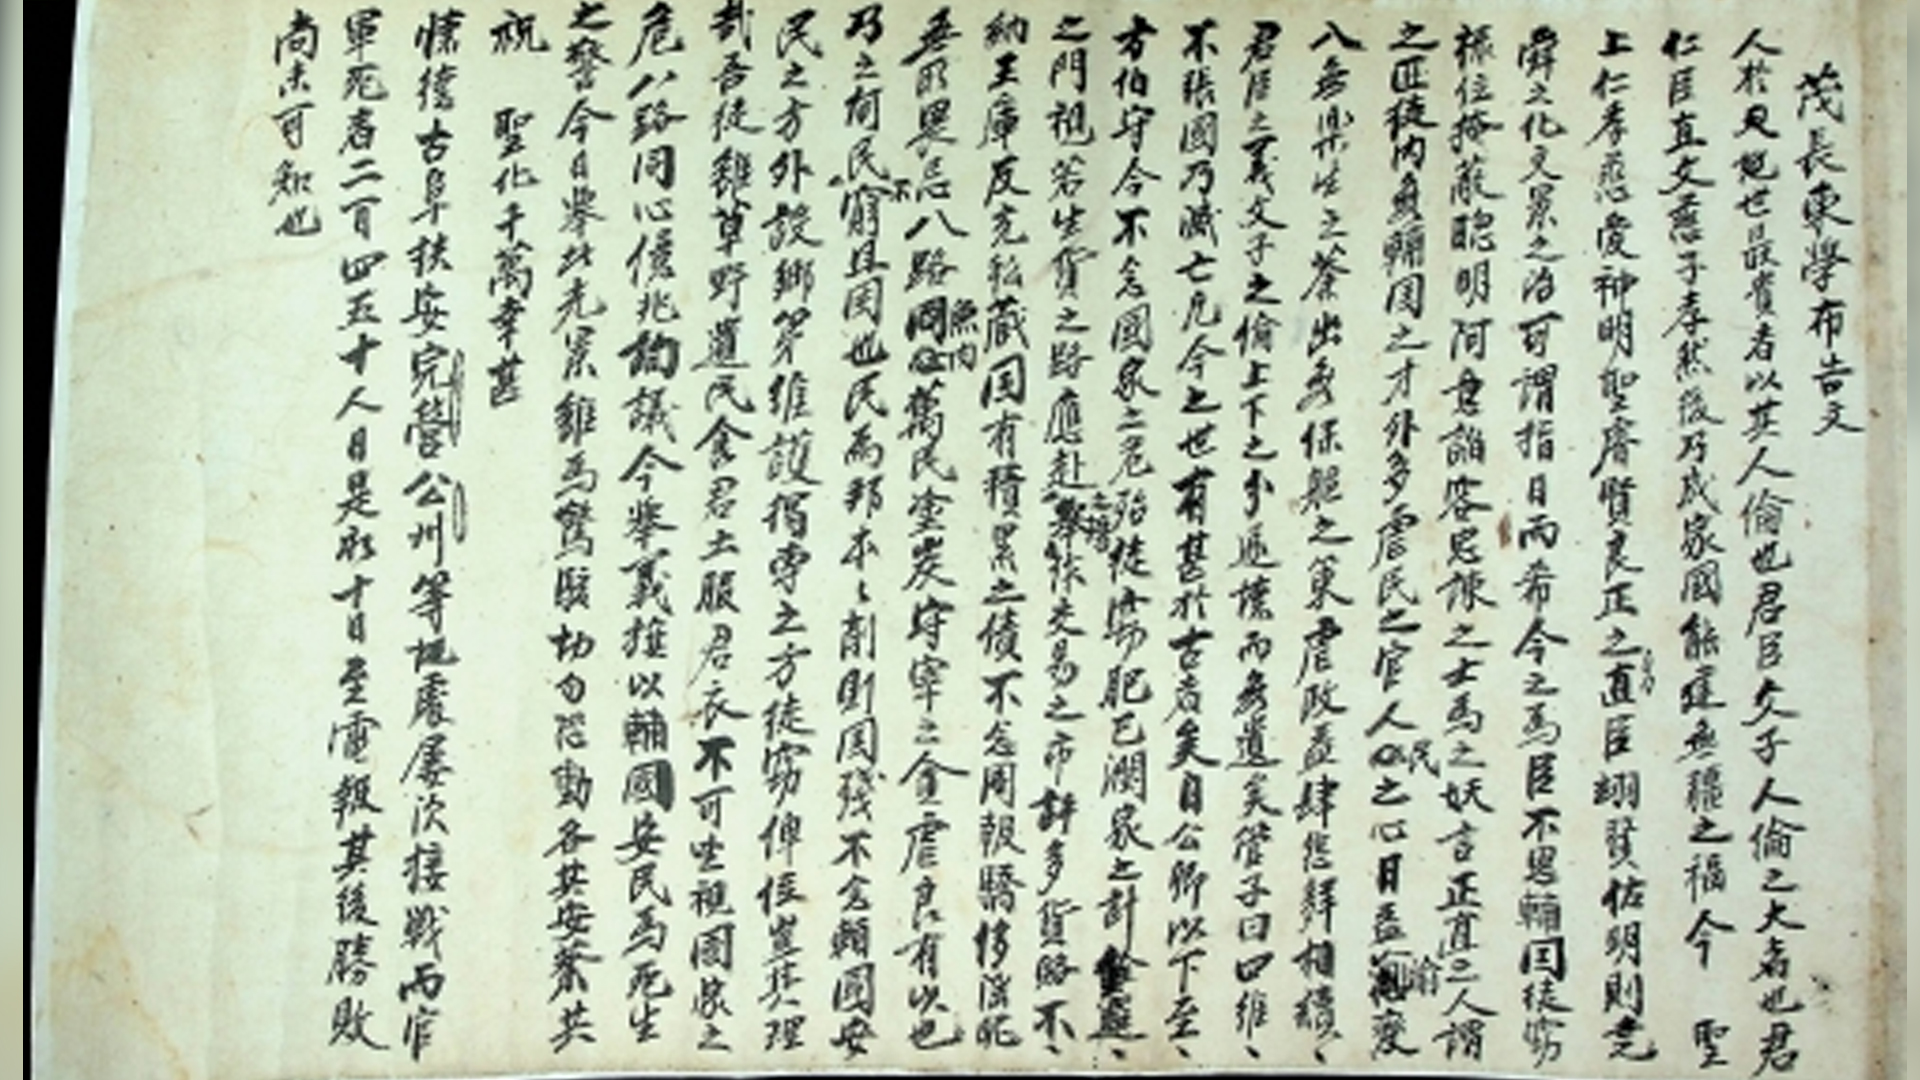 茂長東學布告文
人於天地世最貴者以其人倫也君臣父子人倫之大者也君
仁臣直父慈子孝然後乃成家國能建無疆之福今 聖
上仁孝慈愛神明聖睿賢良正之直臣翊贊佐明則堯
舜之化文景之治可謂指日而希今之爲臣不思輔国徒窃
祿位掩蔽聰明阿意諂容忠諫之士爲之妖言正直之人謂
之匪徒內無輔国之才外多虐民之官人民之心日益渝變
入無樂生之業出無保軀之策虐政益肆怨聲相續
君臣之義父子之倫上下之分逆壞而無遺矣管子曰四維
不張國乃滅亡凡今之世有甚於古者矣自公卿以下至
方伯守令不念國家之危殆徒窃肥己潤家之計
之門視若生貨之路應赴擧作交易之市許多貨賂不
納王庫反充私藏国有積累之債不念圖報驕侈淫昵
無所畏忌八路魚肉萬民塗炭守宰之貪虐良有以也
乃之何民不窮且困也民爲邦本本削則国殘不念輔國安
民之方外設鄉第維護獨專之方徒窃俸位豈其理
哉吾徒雖草野遺民食君土服君衣不可坐視國家之
危八路同心億兆詢議今擧義旗以輔國安民爲死生
之誓今日擧此光景雖爲驚駭切勿恐動各其安業共
祝 聖化千萬幸甚
懷德古阜扶安完營公州等地處屡次接戰而官
軍死者二百四五十人日是初十日至電報其後勝敗
尚未可知也